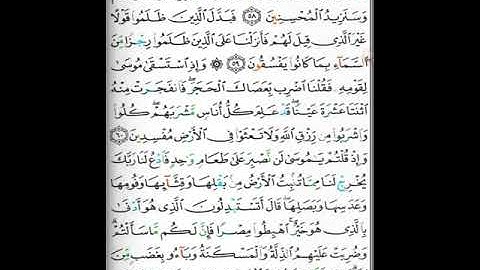 وَسَنَزِيدُ ٱلْمُحْسِنِينَ ٥٨ فَبَدَّلَ ٱلَّذِينَ ظَلَمُوا۟ قَوْلًا
غَيْرَ ٱلَّذِى قِيلَ لَهُمْ فَأَنزَلْنَا عَلَى ٱلَّذِينَ ظَلَمُوا۟ رِجْزًا مِّنَ
ٱلسَّمَآءِ بِمَا كَانُوا۟ يَفْسُقُونَ ٥٩ ۞ وَإِذِ ٱسْتَسْقَىٰ مُوسَىٰ
لِقَوْمِهِۦ فَقُلْنَا ٱضْرِب بِّعَصَاكَ ٱلْحَجَرَ ۖ فَٱنفَجَرَتْ مِنْهُ
ٱثْنَتَا عَشْرَةَ عَيْنًا ۖ قَدْ عَلِمَ كُلُّ أُنَاسٍ مَّشْرَبَهُمْ ۖ كُلُوا۟
وَٱشْرَبُوا۟ مِن رِّزْقِ ٱللَّهِ وَلَا تَعْثَوْا۟ فِى ٱلْأَرْضِ مُفْسِدِينَ ٦٠
وَإِذْ قُلْتُمْ يَٰمُوسَىٰ لَن نَّصْبِرَ عَلَىٰ طَعَامٍ وَٰحِدٍ فَٱدْعُ لَنَا رَبَّكَ
يُخْرِجْ لَنَا مِمَّا تُنۢبِتُ ٱلْأَرْضُ مِنۢ بَقْلِهَا وَقِثَّآئِهَا وَفُومِهَا
وَعَدَسِهَا وَبَصَلِهَا ۖ قَالَ أَتَسْتَبْدِلُونَ ٱلَّذِى هُوَ أَدْنَىٰ
بِٱلَّذِى هُوَ خَيْرٌ ۚ ٱهْبِطُوا۟ مِصْرًا فَإِنَّ لَكُم مَّا سَأَلْتُمْ ۗ
وَضُرِبَتْ عَلَيْهِمُ ٱلذِّلَّةُ وَٱلْمَسْكَنَةُ وَبَآءُو بِغَضَبٍ مِّنَ